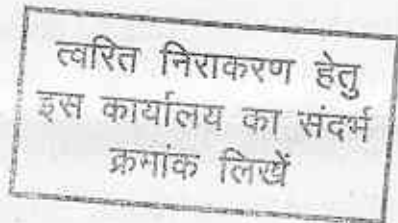 त्वरित निराकरण हेतु
इस कार्यालय का संदर्भ
क्रमांक लिखें